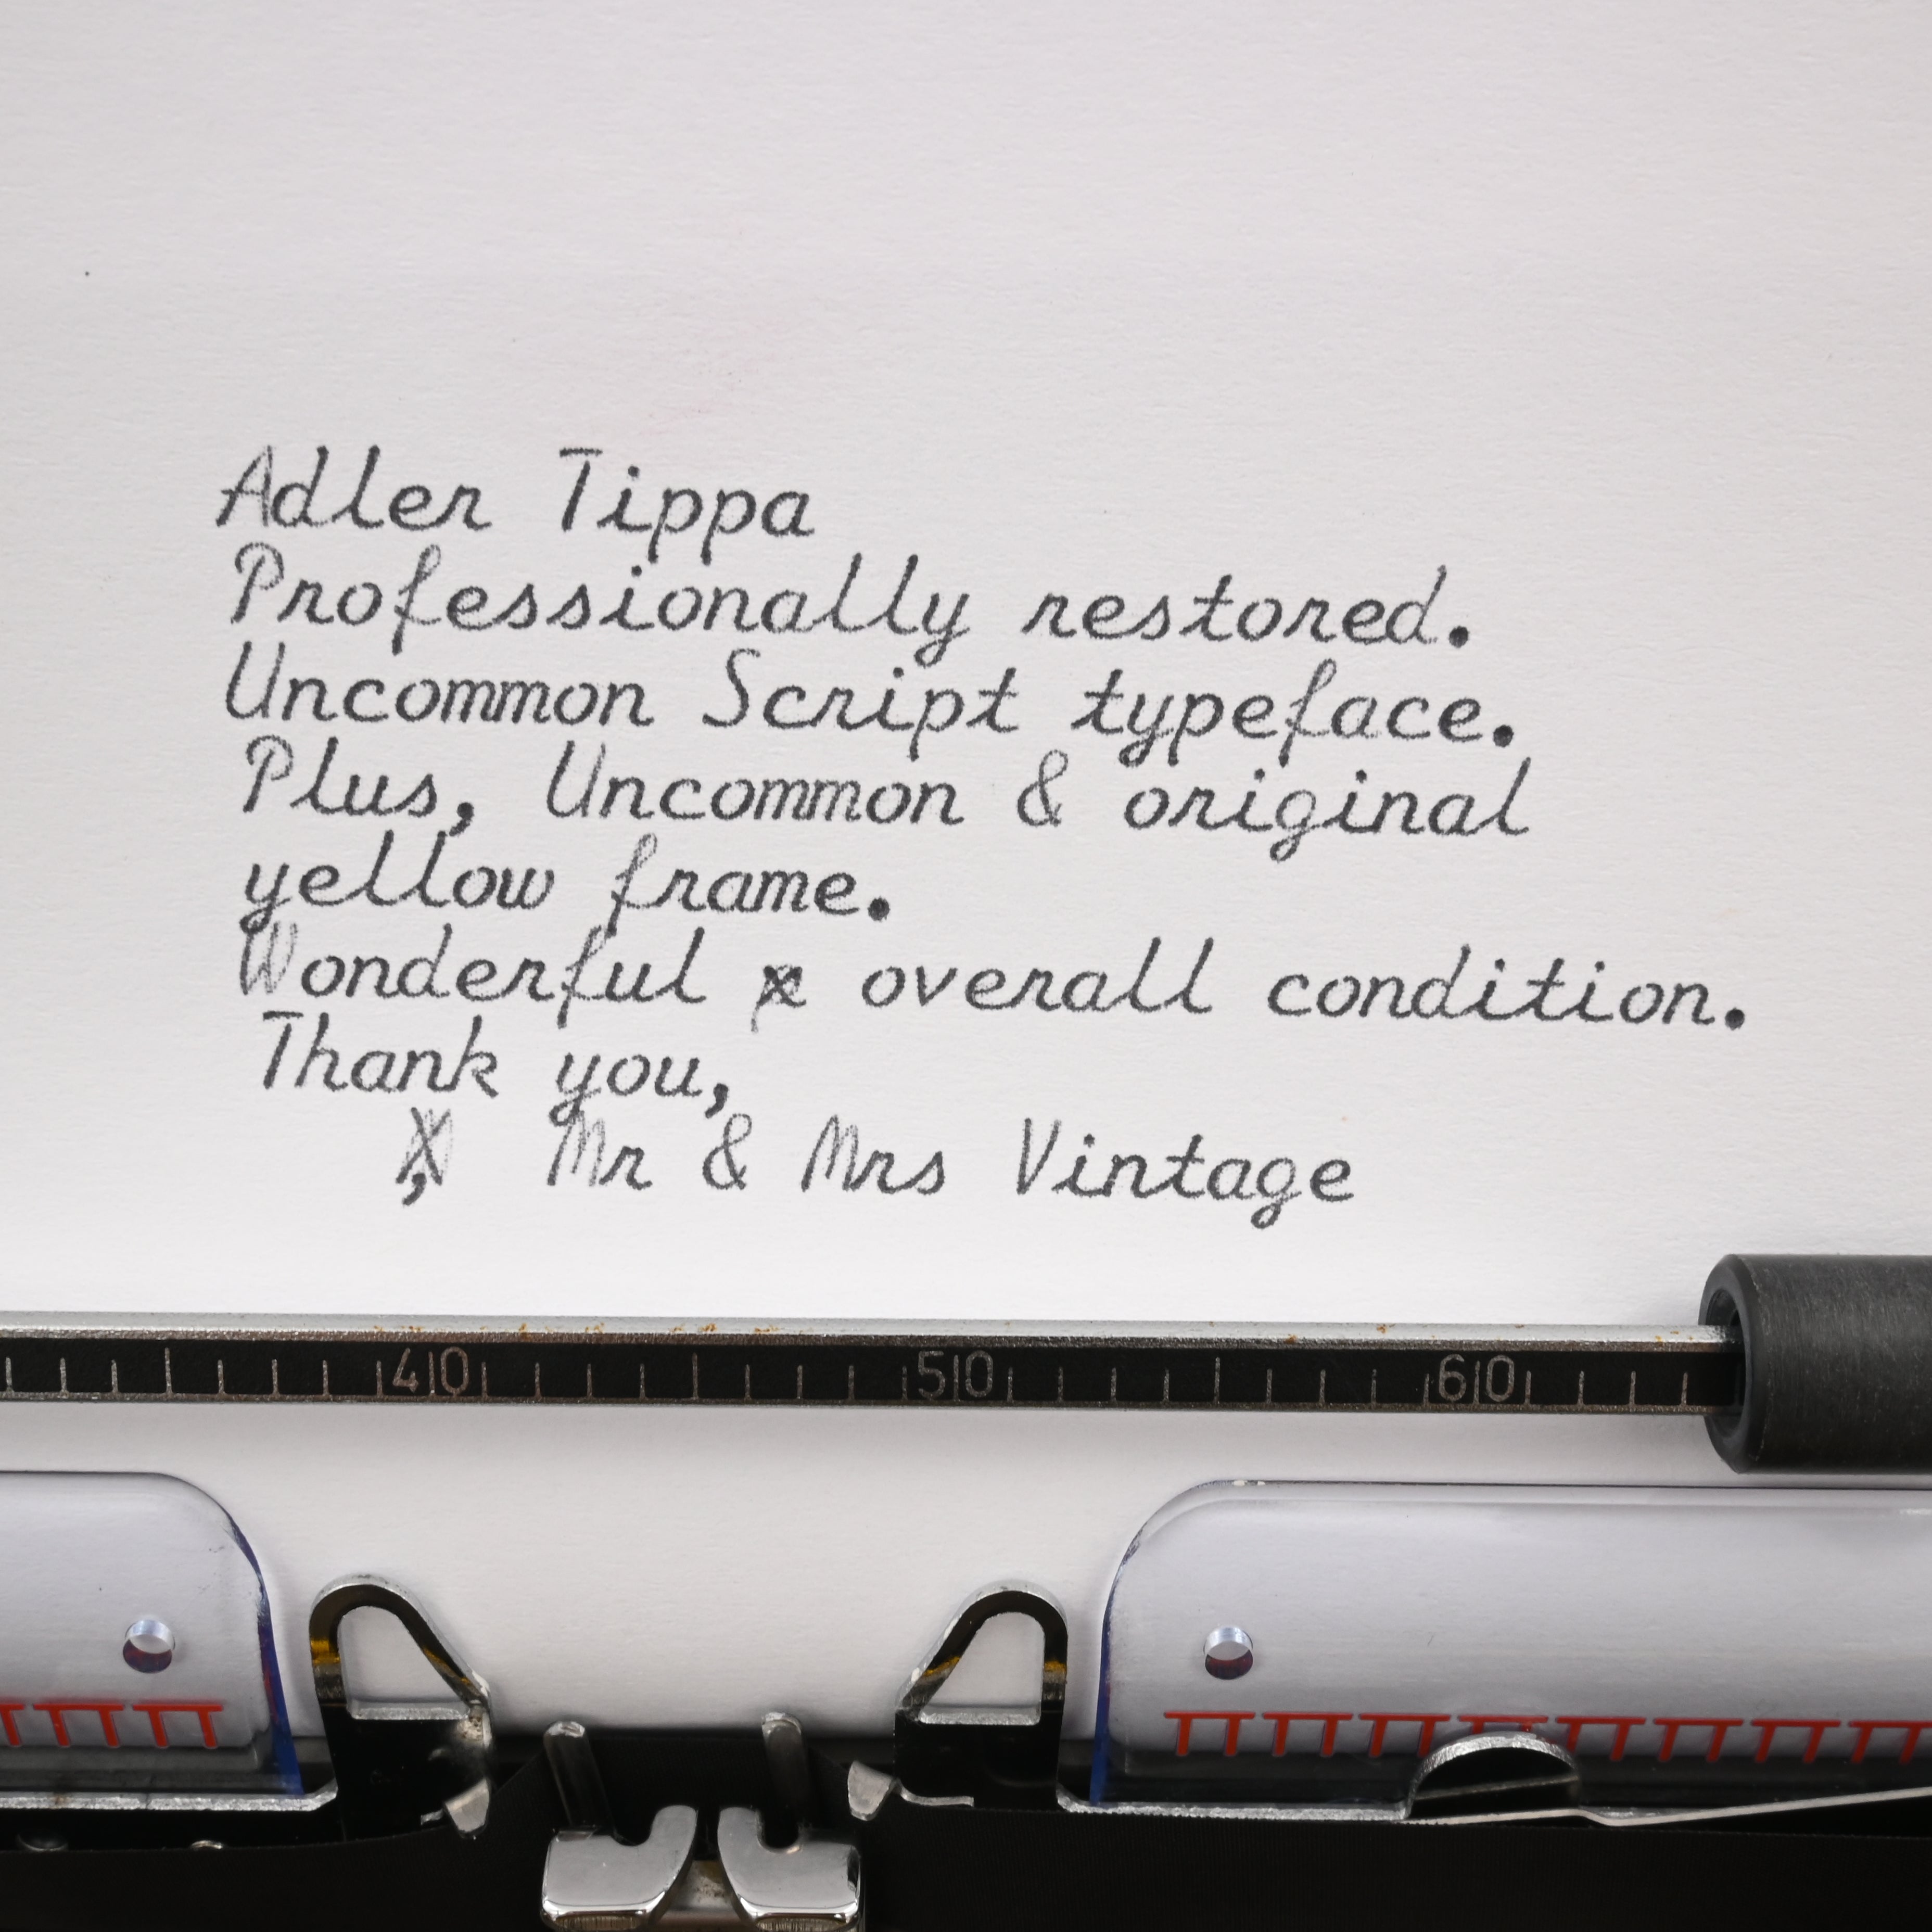 Adler Tippa
Professionally restored.
Uncommon Script typeface.
Plus, Uncommon & original
yellow frame.
Wonderful overall condition.
Thank you,
Mr & Mrs Vintage
40 50 60